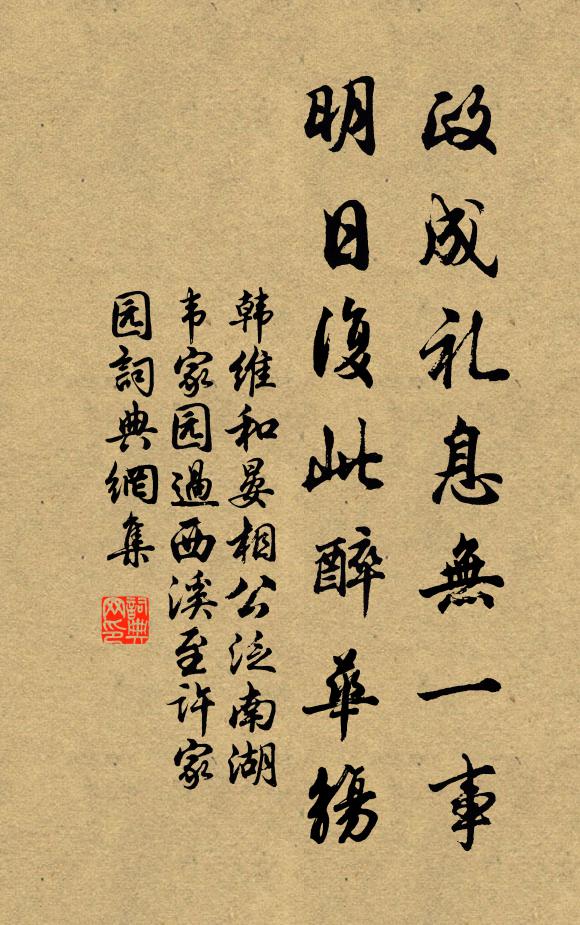 政成礼息無一事
明日復此醉華觴
韩維和晏相公泛南湖
韦家园過西溪至许家
园詞典網集
詞典
网印